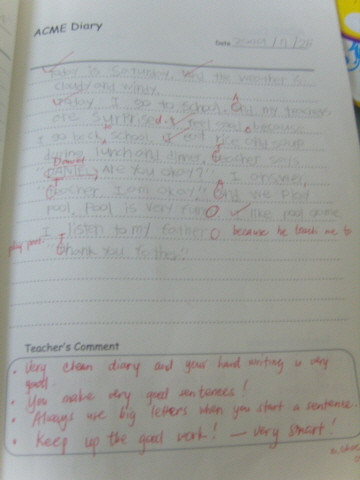 ACME Diary
Date 2009 / 11 / 28
Today is Saturday. And the weather is
cloudy and windy.
Today I go to school. And my teachers
are surprised. I feel good because
I go back to school. I eat rice and soup
during lunch and dinner. teacher says
Daniel
"DANIEL, Are you okay?" I answer,
"teacher I am okay!" And we play
pool. Pool is very fun. I like pool game.
I listen to my father because he teach me to
play pool.
"Thank you father."
Teacher's Comment
• Very clean diary and your hand writing is very
good.
• You make very good sentences!
• Always use big letters when you start a sentence.
• Keep up the good work! — very smart!